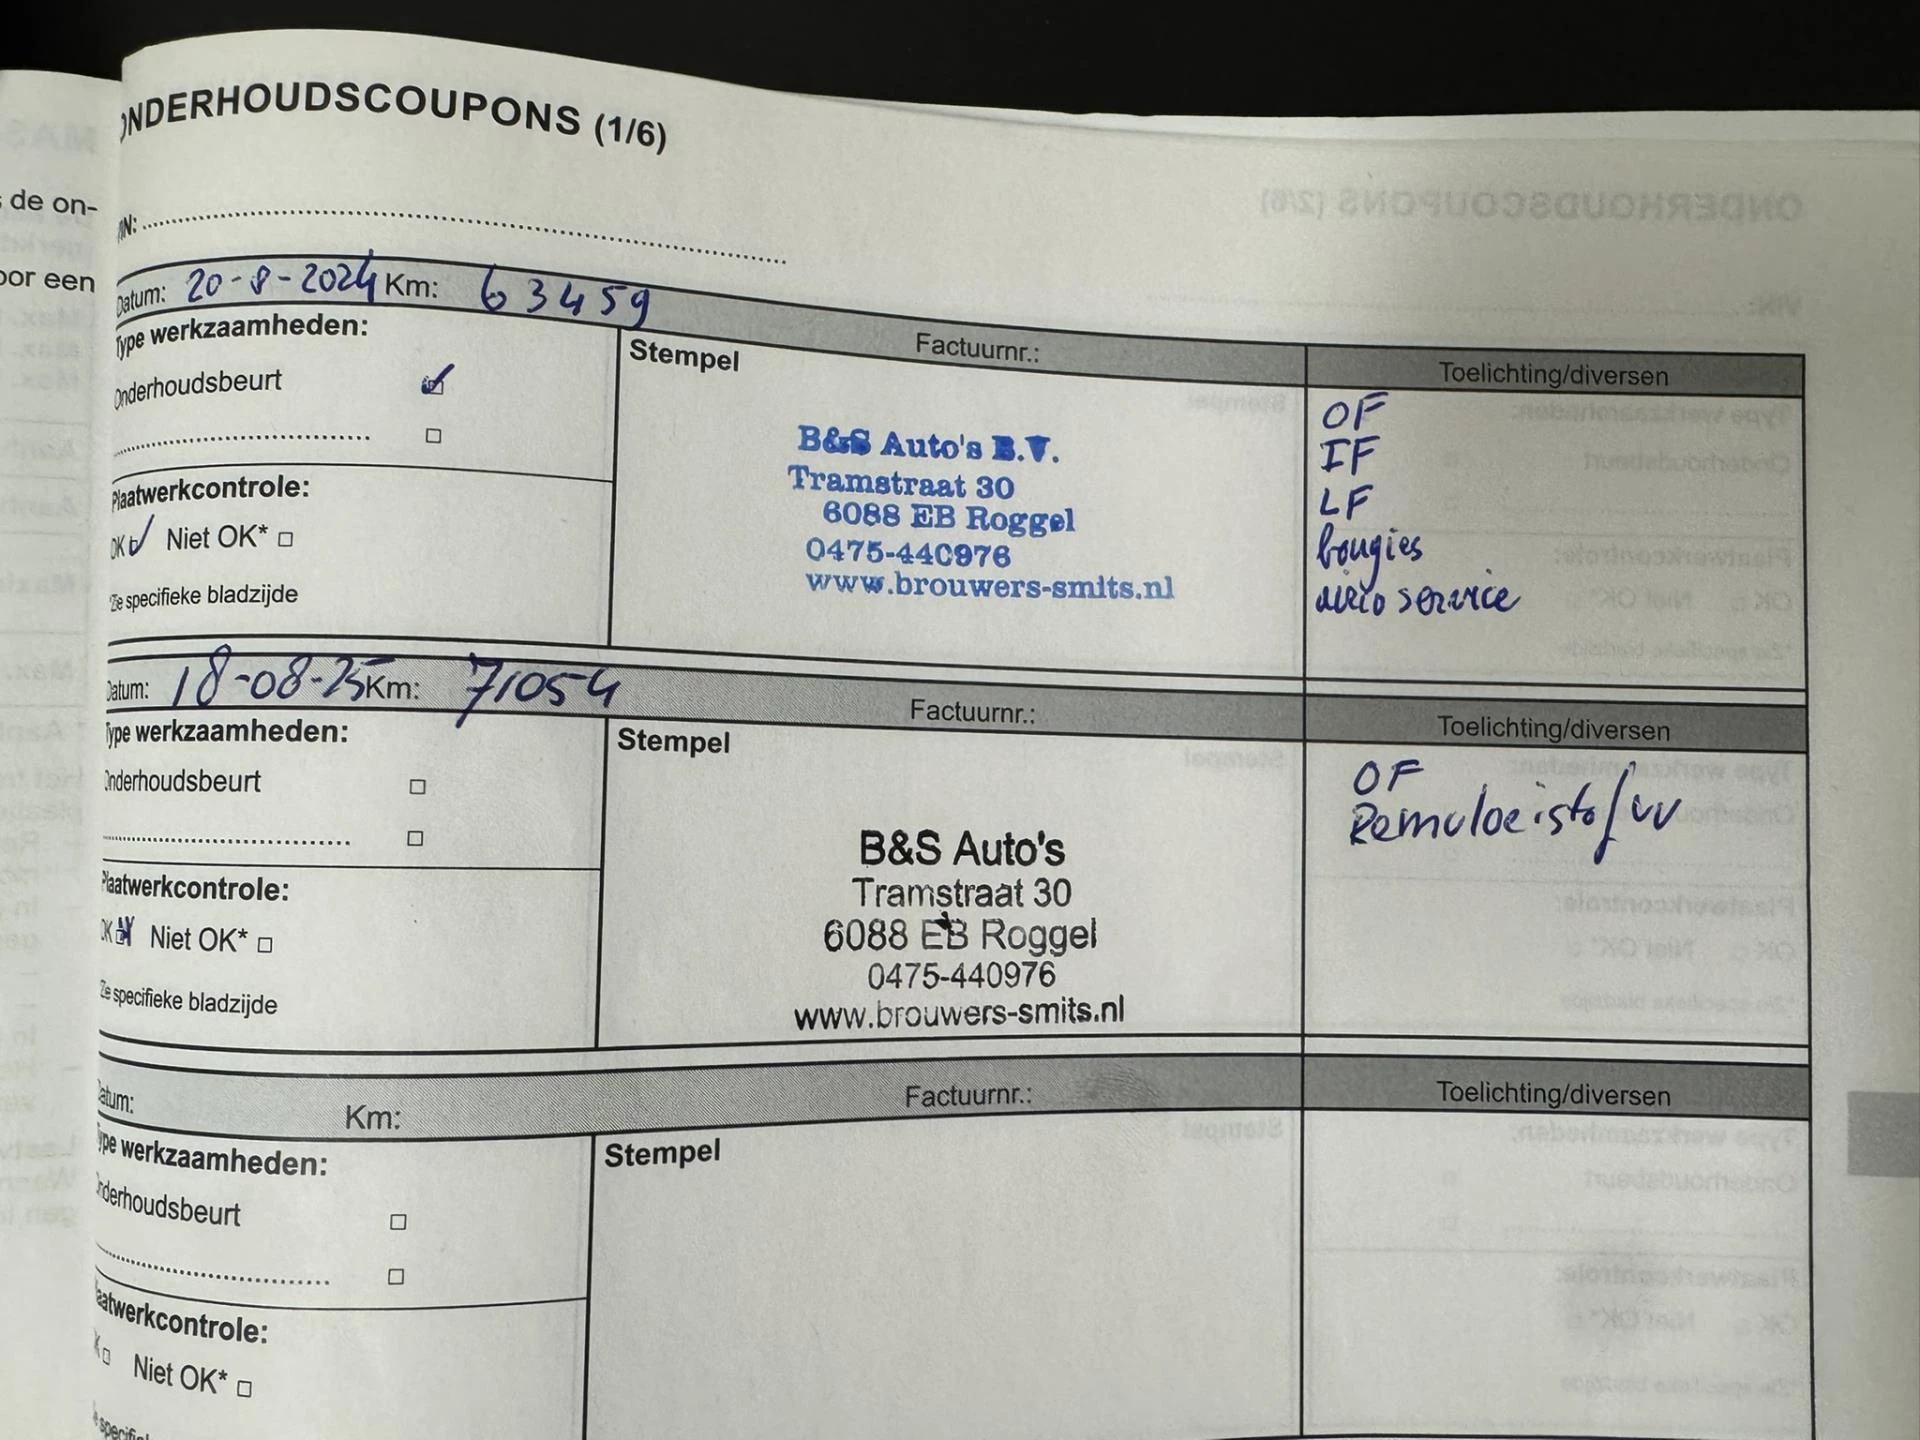 ONDERHOUDSCOUPONS (1/6)
s de on-
VIN:
oor een
Datum: 20-8-2024 Km: 63459
Factuurnr.:
Toelichting/diversen
Type werkzaamheden:
Onderhoudsbeurt
Plaatwerkcontrole:
OK Niet OK*
*Zie specifieke bladzijde
Stempel
B&S Auto's B.V.
Tramstraat 30
6088 EB Roggel
0475-440976
www.brouwers-smits.nl
OF
IF
LF
bougies
airco service
Datum: 18-08-25 Km: 71054
Factuurnr.:
Toelichting/diversen
Type werkzaamheden:
Onderhoudsbeurt
Plaatwerkcontrole:
OK Niet OK*
*Zie specifieke bladzijde
Stempel
B&S Auto's
Tramstraat 30
6088 EB Roggel
0475-440976
www.brouwers-smits.nl
OF
Remvloeistof vv
Datum:
Km:
Factuurnr.:
Toelichting/diversen
Type werkzaamheden:
Onderhoudsbeurt
Plaatwerkcontrole:
OK Niet OK*
Stempel